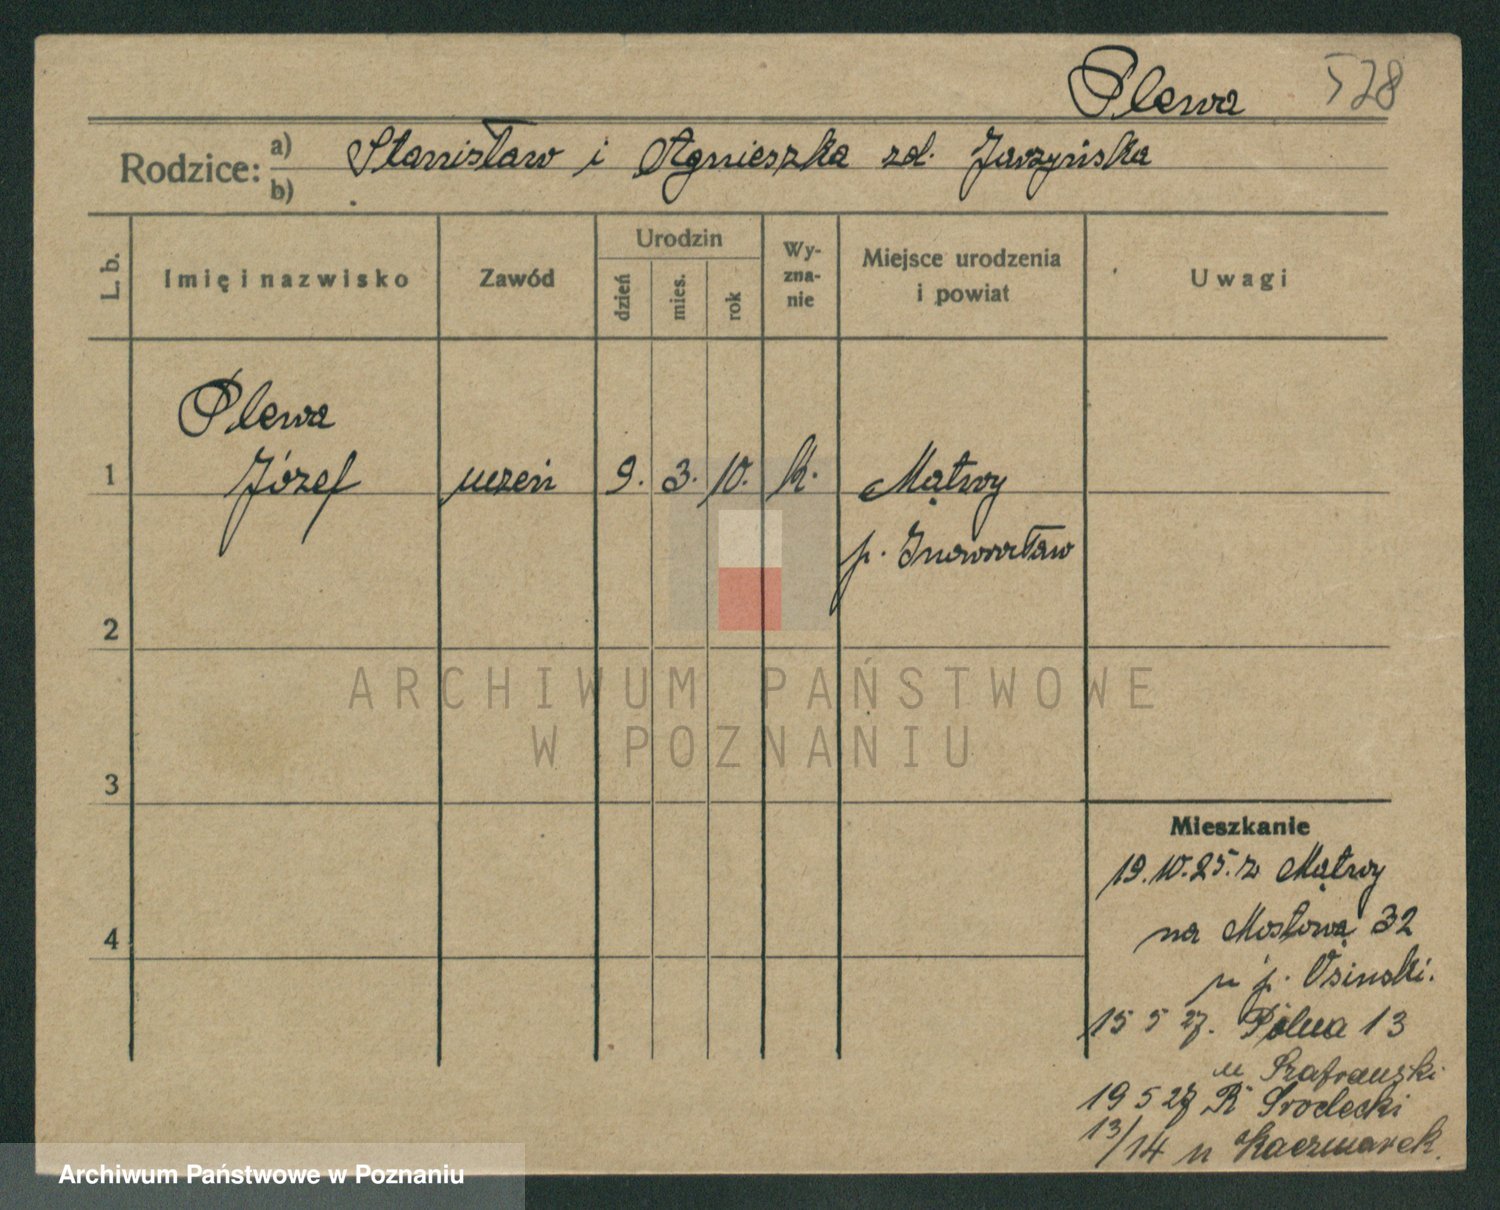 Plewa 528
Rodzice: a) Stanisław i Agnieszka zd. Jarzyńska
b)
L. b. Imię i nazwisko Zawód Urodzin dzień mies. rok Wyzna-nie Miejsce urodzenia i powiat Uwagi
Plewa
1 Józef uczeń 9. 3. 10. k. Mątwy
p. Inowrocław
2
ARCHIWUM PAŃSTWOWE
W POZNANIU
3
Mieszkanie
19.10.25. z Mątwy
4 na Mostowa 32
u p. Osinski.
15 5 27. Polna 13
u Szafranski
19 5 27 R Srodecki
13/14 u Kaczmarek.
Archiwum Państwowe w Poznaniu